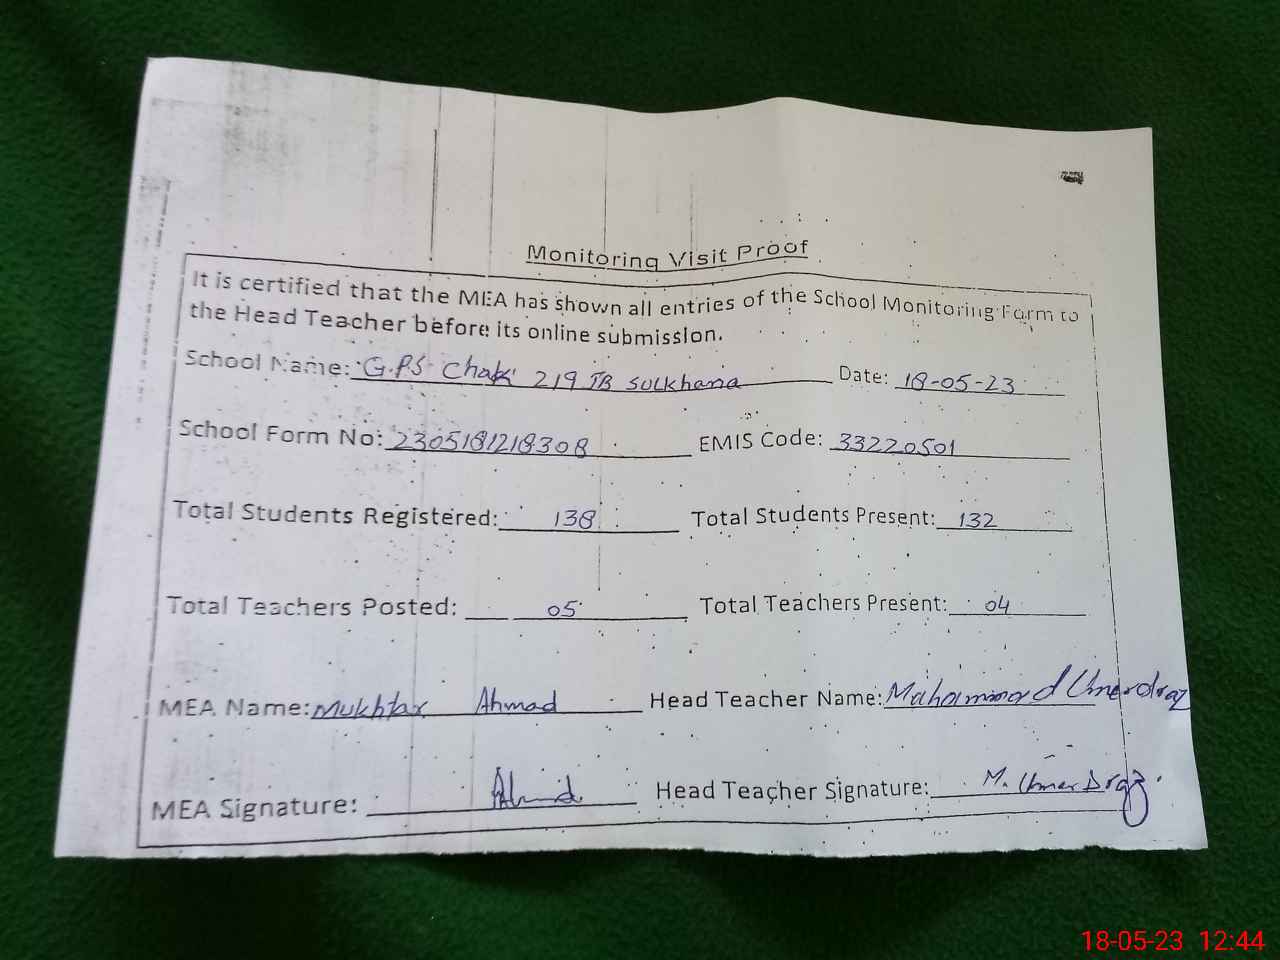 Monitoring Visit Proof
It is certified that the MEA has shown all entries of the School Monitoring Form to
the Head Teacher before its online submission.
School Name: G.P.S Chak 219 JB Sulkhana Date: 18-05-23
School Form No: 2305181218308 EMIS Code: 33220501
Total Students Registered: 138 Total Students Present: 132
Total Teachers Posted: 05 Total Teachers Present: 04
MEA Name: Mukhtar Ahmad Head Teacher Name: Mahammad Umerdraz
MEA Signature: Ahmd Head Teacher Signature: M. Umer Draz
18-05-23 12:44